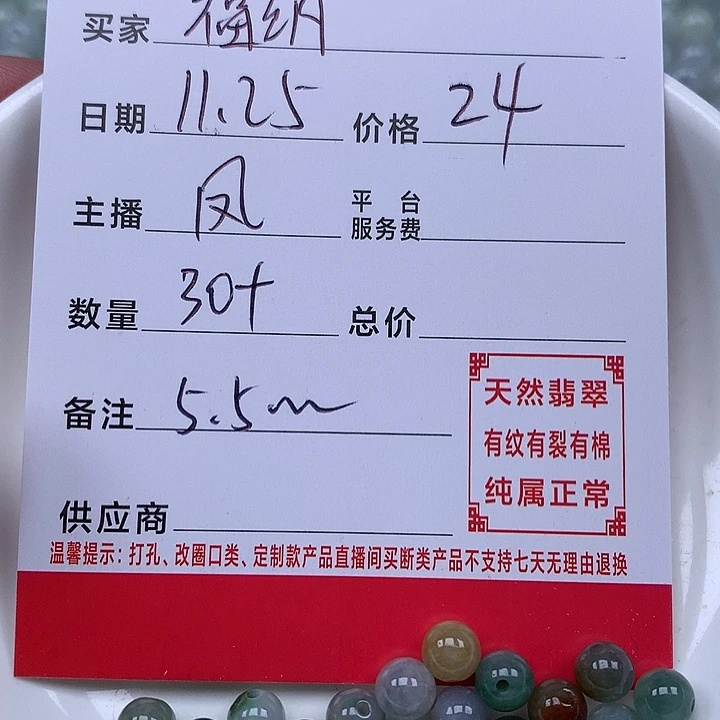 买家 福纳
日期 11.25 价格 24
主播 凤 平台服务费
数量 30+ 总价
备注 5.5m
天然翡翠
有纹有裂有棉
纯属正常
供应商
温馨提示：打孔、改圈口类、定制款产品直播间买断类产品不支持七天无理由退换